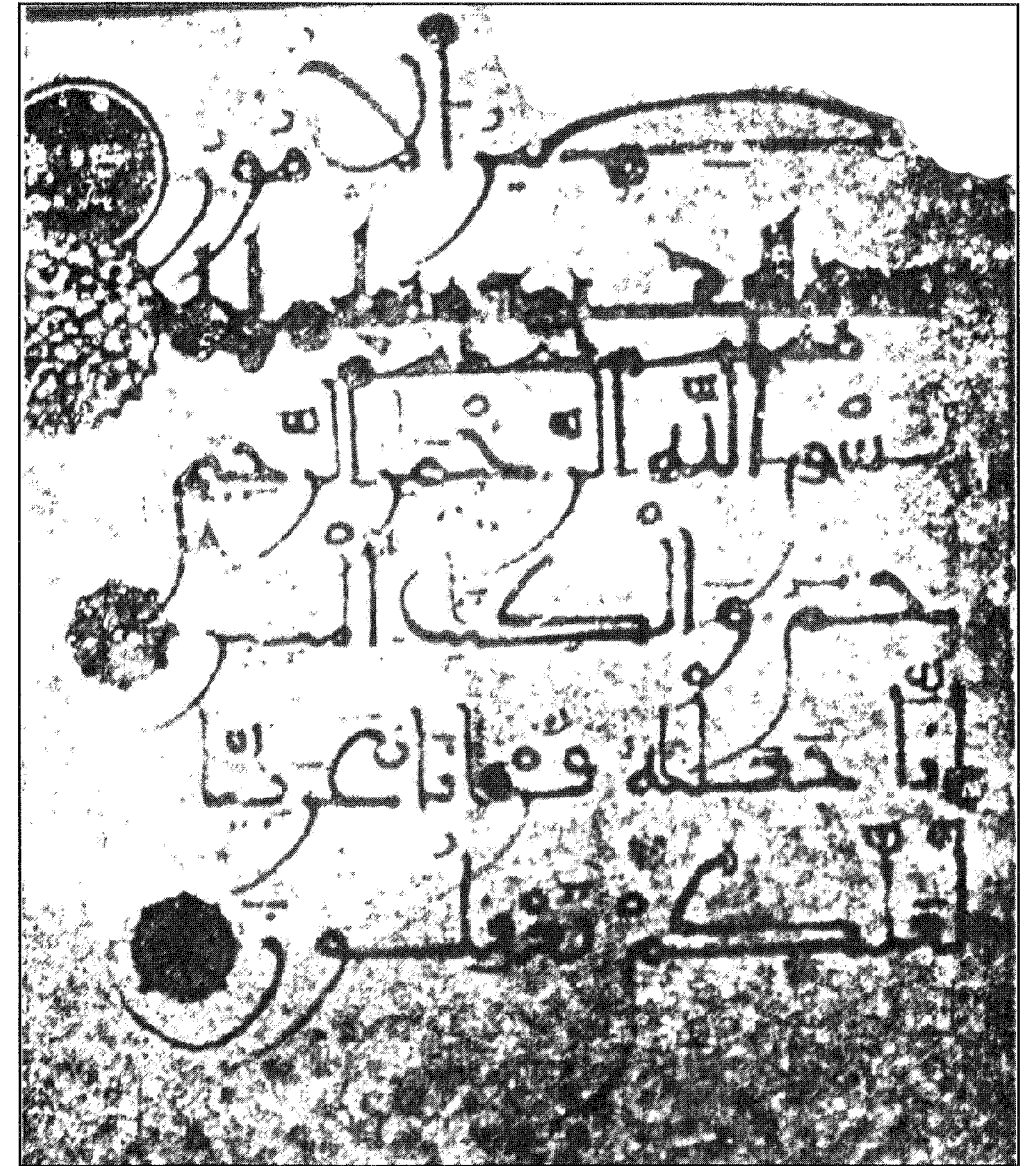 تصير الامور
بسم الله الرحمن الرحيم
حم والكتاب المبين
انا جعلناه قرانا عربيا
لعلكم تعقلون